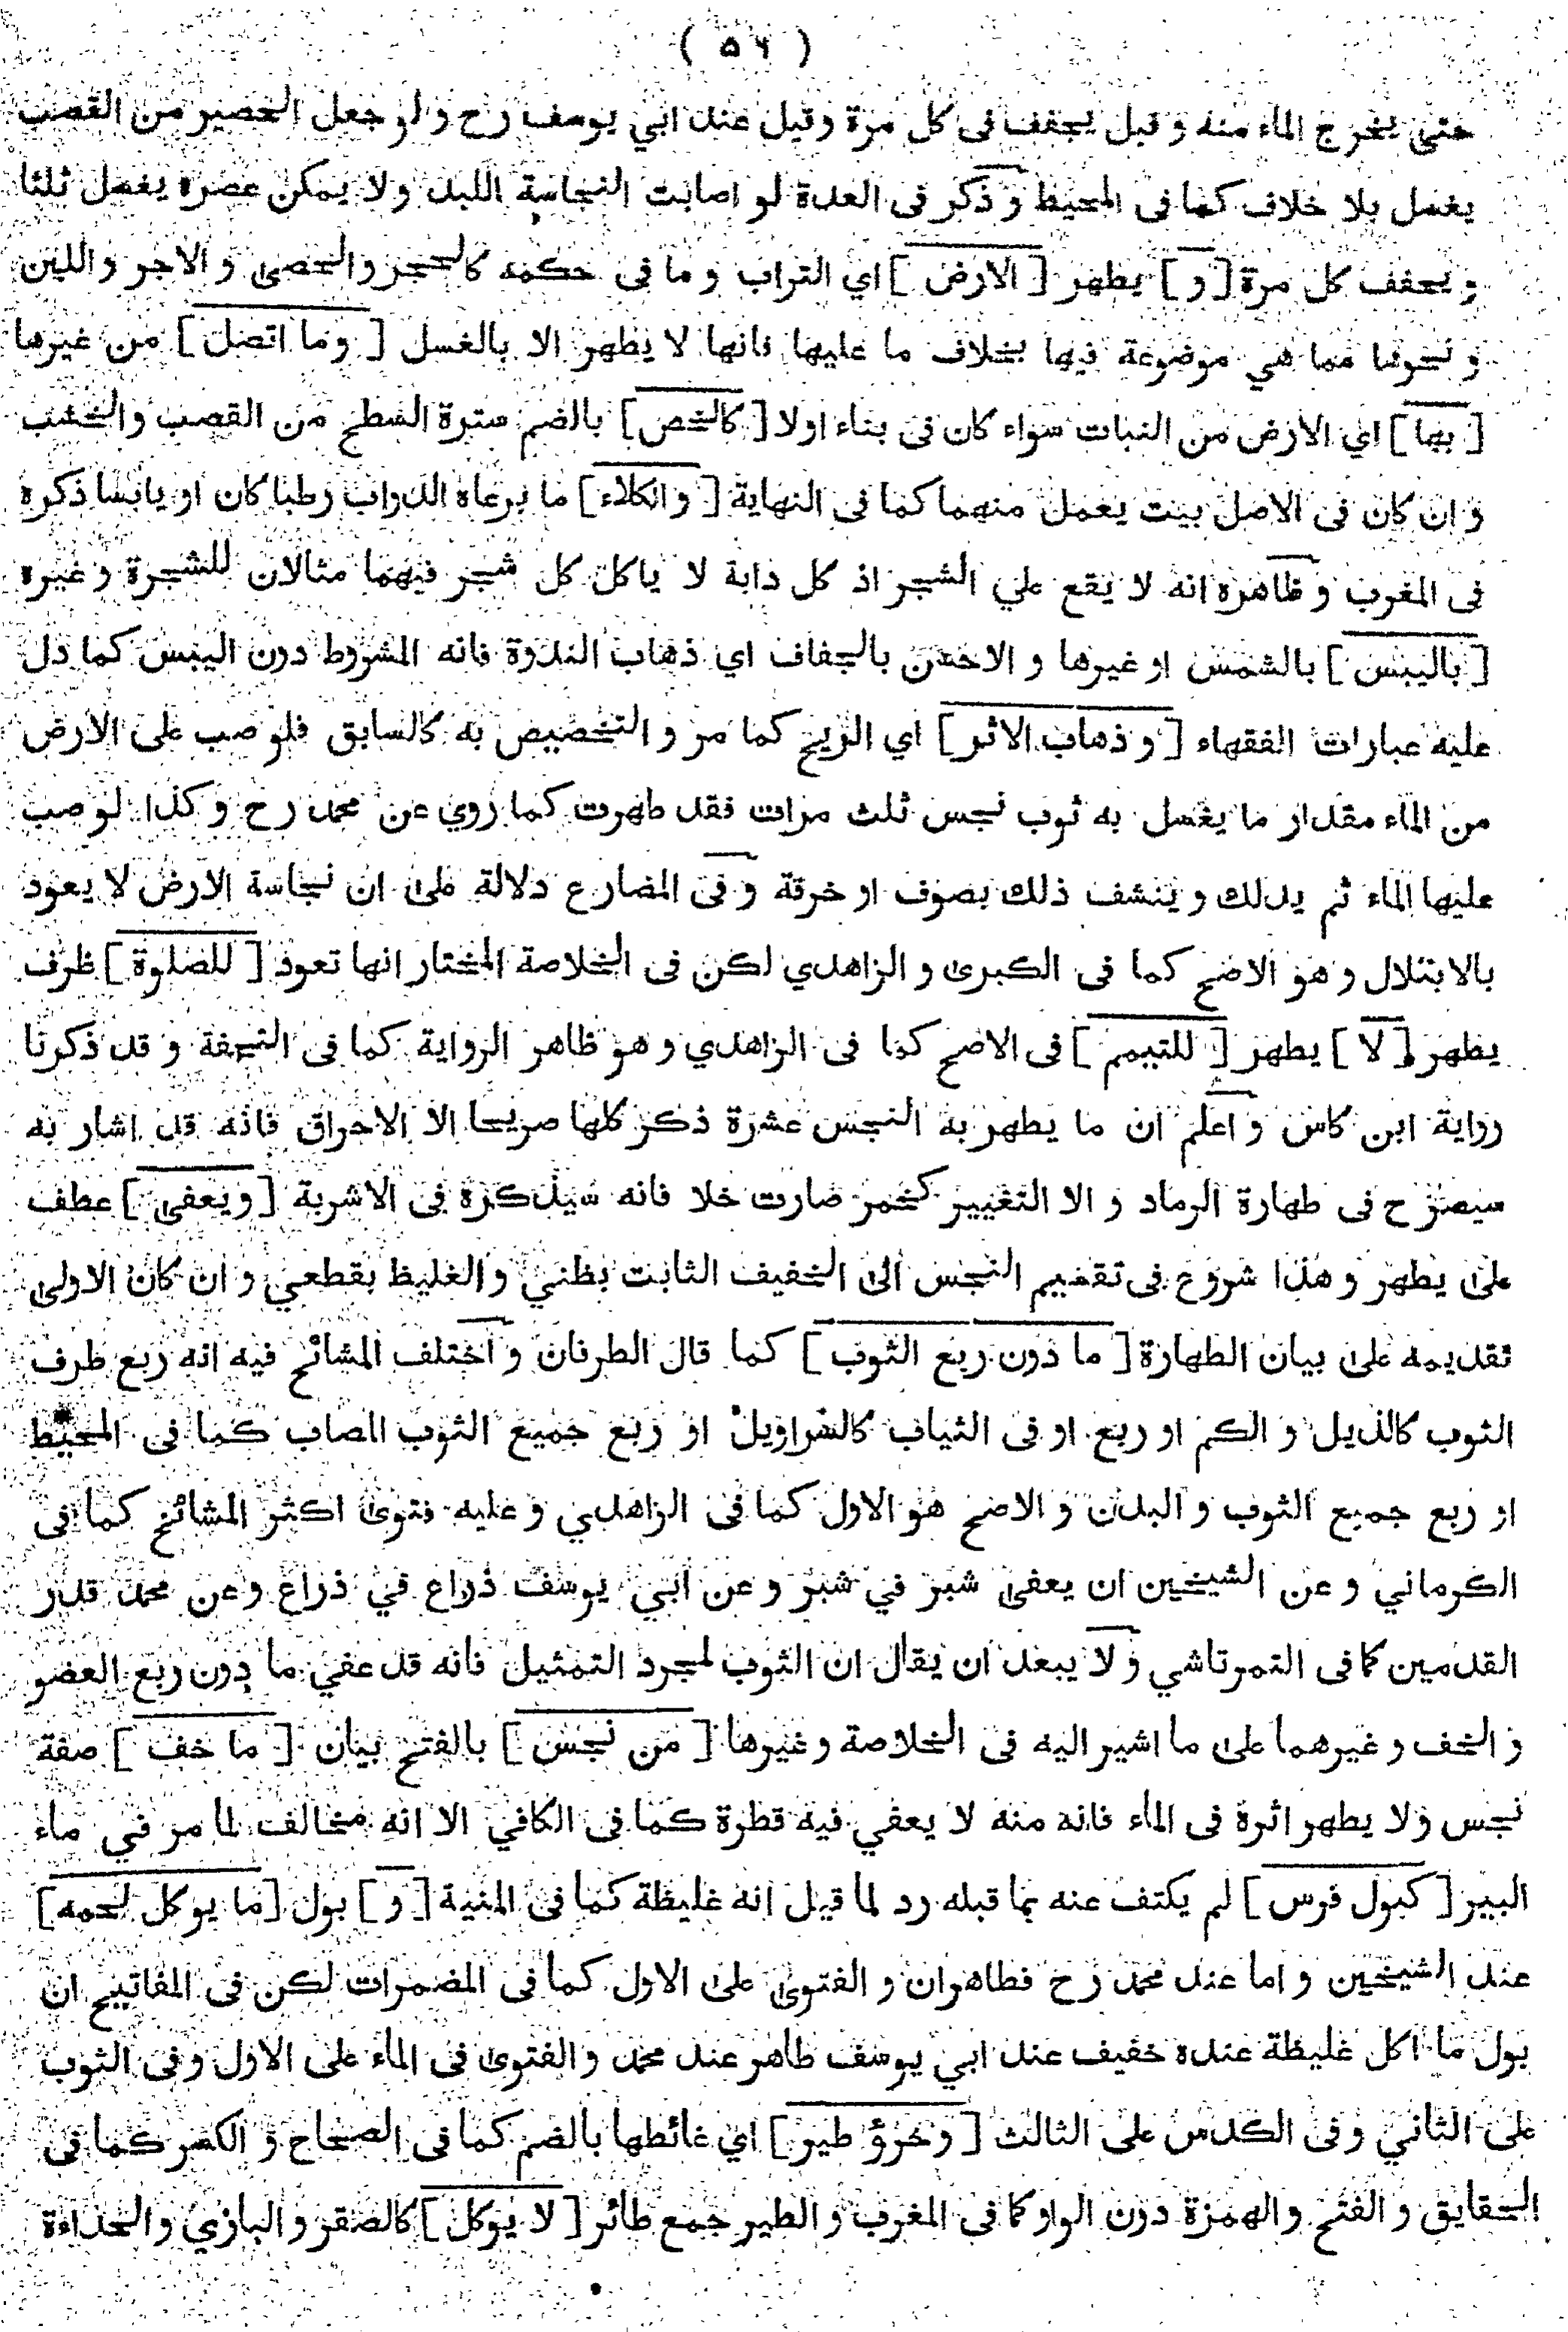 ( ٥٦ )
حتى يخرج الماء منه و قيل يجفف فى كل مرة وقيل عند ابي يوسف رح و لو جعل الحصير من القصب
يغسل بلا خلاف كما فى المحيط و ذكر فى العدة لو اصابت النجاسة اللبد ولا يمكن عصره يغسل ثلثا
و يجفف كل مرة [ و ] يطهر [ الارض ] اي التراب و ما فى حكمه كالحجر والحصى و الاجر واللبن
و نحوها مما هي موضوعة فيها بخلاف ما عليها فانها لا يطهر الا بالغسل [ وما اتصل ] من غيرها
[ بها ] اي الارض من النبات سواء كان فى بناء اولا [ كالخص ] بالضم سترة السطح من القصب والخشب
و ان كان فى الاصل بيت يعمل منهما كما فى النهاية [ والكلاء ] ما يرعاه الدواب رطبا كان او يابسا ذكره
فى المغرب و ظاهره انه لا يقع علي الشجر اذ كل دابة لا ياكل كل شجر فيهما مثالان للشجرة و غيره
[ باليبس ] بالشمس او غيرها و الاحسن بالجفاف اي ذهاب الندوة فانه المشروط دون اليبس كما دل
عليه عبارات الفقهاء [ و ذهاب الاثر ] اي الريح كما مر و التخصيص به كالسابق فلو صب على الارض
من الماء مقدار ما يغسل به ثوب نجس ثلث مرات فقد طهرت كما روي عن محمد رح و كذا لو صب
عليها الماء ثم يدلك و ينشف ذلك بصوف او خرقة و فى المضارع دلالة على ان نجاسة الارض لا يعود
بالابتلال و هو الاصح كما فى الكبرى و الزاهدي لكن فى الخلاصة المختار انها تعود [ للصلوة ] ظرف
يطهر [ لا ] يطهر [ للتيمم ] فى الاصح كما فى الزاهدي و هو ظاهر الرواية كما فى التحفة و قد ذكرنا
رواية ابن كاس و اعلم ان ما يطهر به النجس عشرة ذكر كلها صريحا الا الاحراق فانه قد اشار به
سيصرح فى طهارة الرماد و الا التغيير كخمر صارت خلا فانه سيذكره فى الاشربة [ ويعفى ] عطف
على يطهر و هذا شروع فى تقسيم النجس الى الخفيف الثابت بظني والغليظ بقطعي و ان كان الاولى
تقديمه على بيان الطهارة [ ما دون ربع الثوب ] كما قال الطرفان و اختلف المشائخ فيه انه ربع طرف
الثوب كالذيل و الكم او ربع او فى الثياب كالسراويل او ربع جميع الثوب المصاب كما فى المحيط
او ربع جميع الثوب و البدن و الاصح هو الاول كما فى الزاهدي و عليه فتوى اكثر المشائخ كما فى
الكرماني و عن الشيخين ان يعفى شبر في شبر و عن ابي يوسف ذراع في ذراع وعن محمد قدر
القدمين كما فى التمرتاشي و لا يبعد ان يقال ان الثوب لمجرد التمثيل فانه قد عفي ما دون ربع العضو
و الخف و غيرهما على ما اشير اليه فى الخلاصة و غيرها [ من نجس ] بالفتح بيان [ ما خف ] صفة
نجس ولا يطهر اثرة فى الماء فانه منه لا يعفي فيه قطرة كما فى الكافي الا انه مخالف لما مر في ماء
البير [ كبول فرس ] لم يكتف عنه بما قبله رد لما قيل انه غليظة كما فى المنية [ و ] بول [ ما يوكل لحمه ]
عند الشيخين و اما عند محمد رح فطاهران و الفتوى على الاول كما فى المضمرات لكن فى المفاتيح ان
بول ما اكل غليظة عنده خفيف عند ابي يوسف طاهر عند محمد والفتوى فى الماء على الاول وفى الثوب
على الثاني وفى الكدس على الثالث [ وخرؤ طير ] اي غائطها بالضم كما فى الصحاح و الكسر كما فى
الحقايق و الفتح والهمزة دون الواو كما فى المغرب و الطير جمع طائر [ لا يوكل ] كالصقر و البازي والحداءة